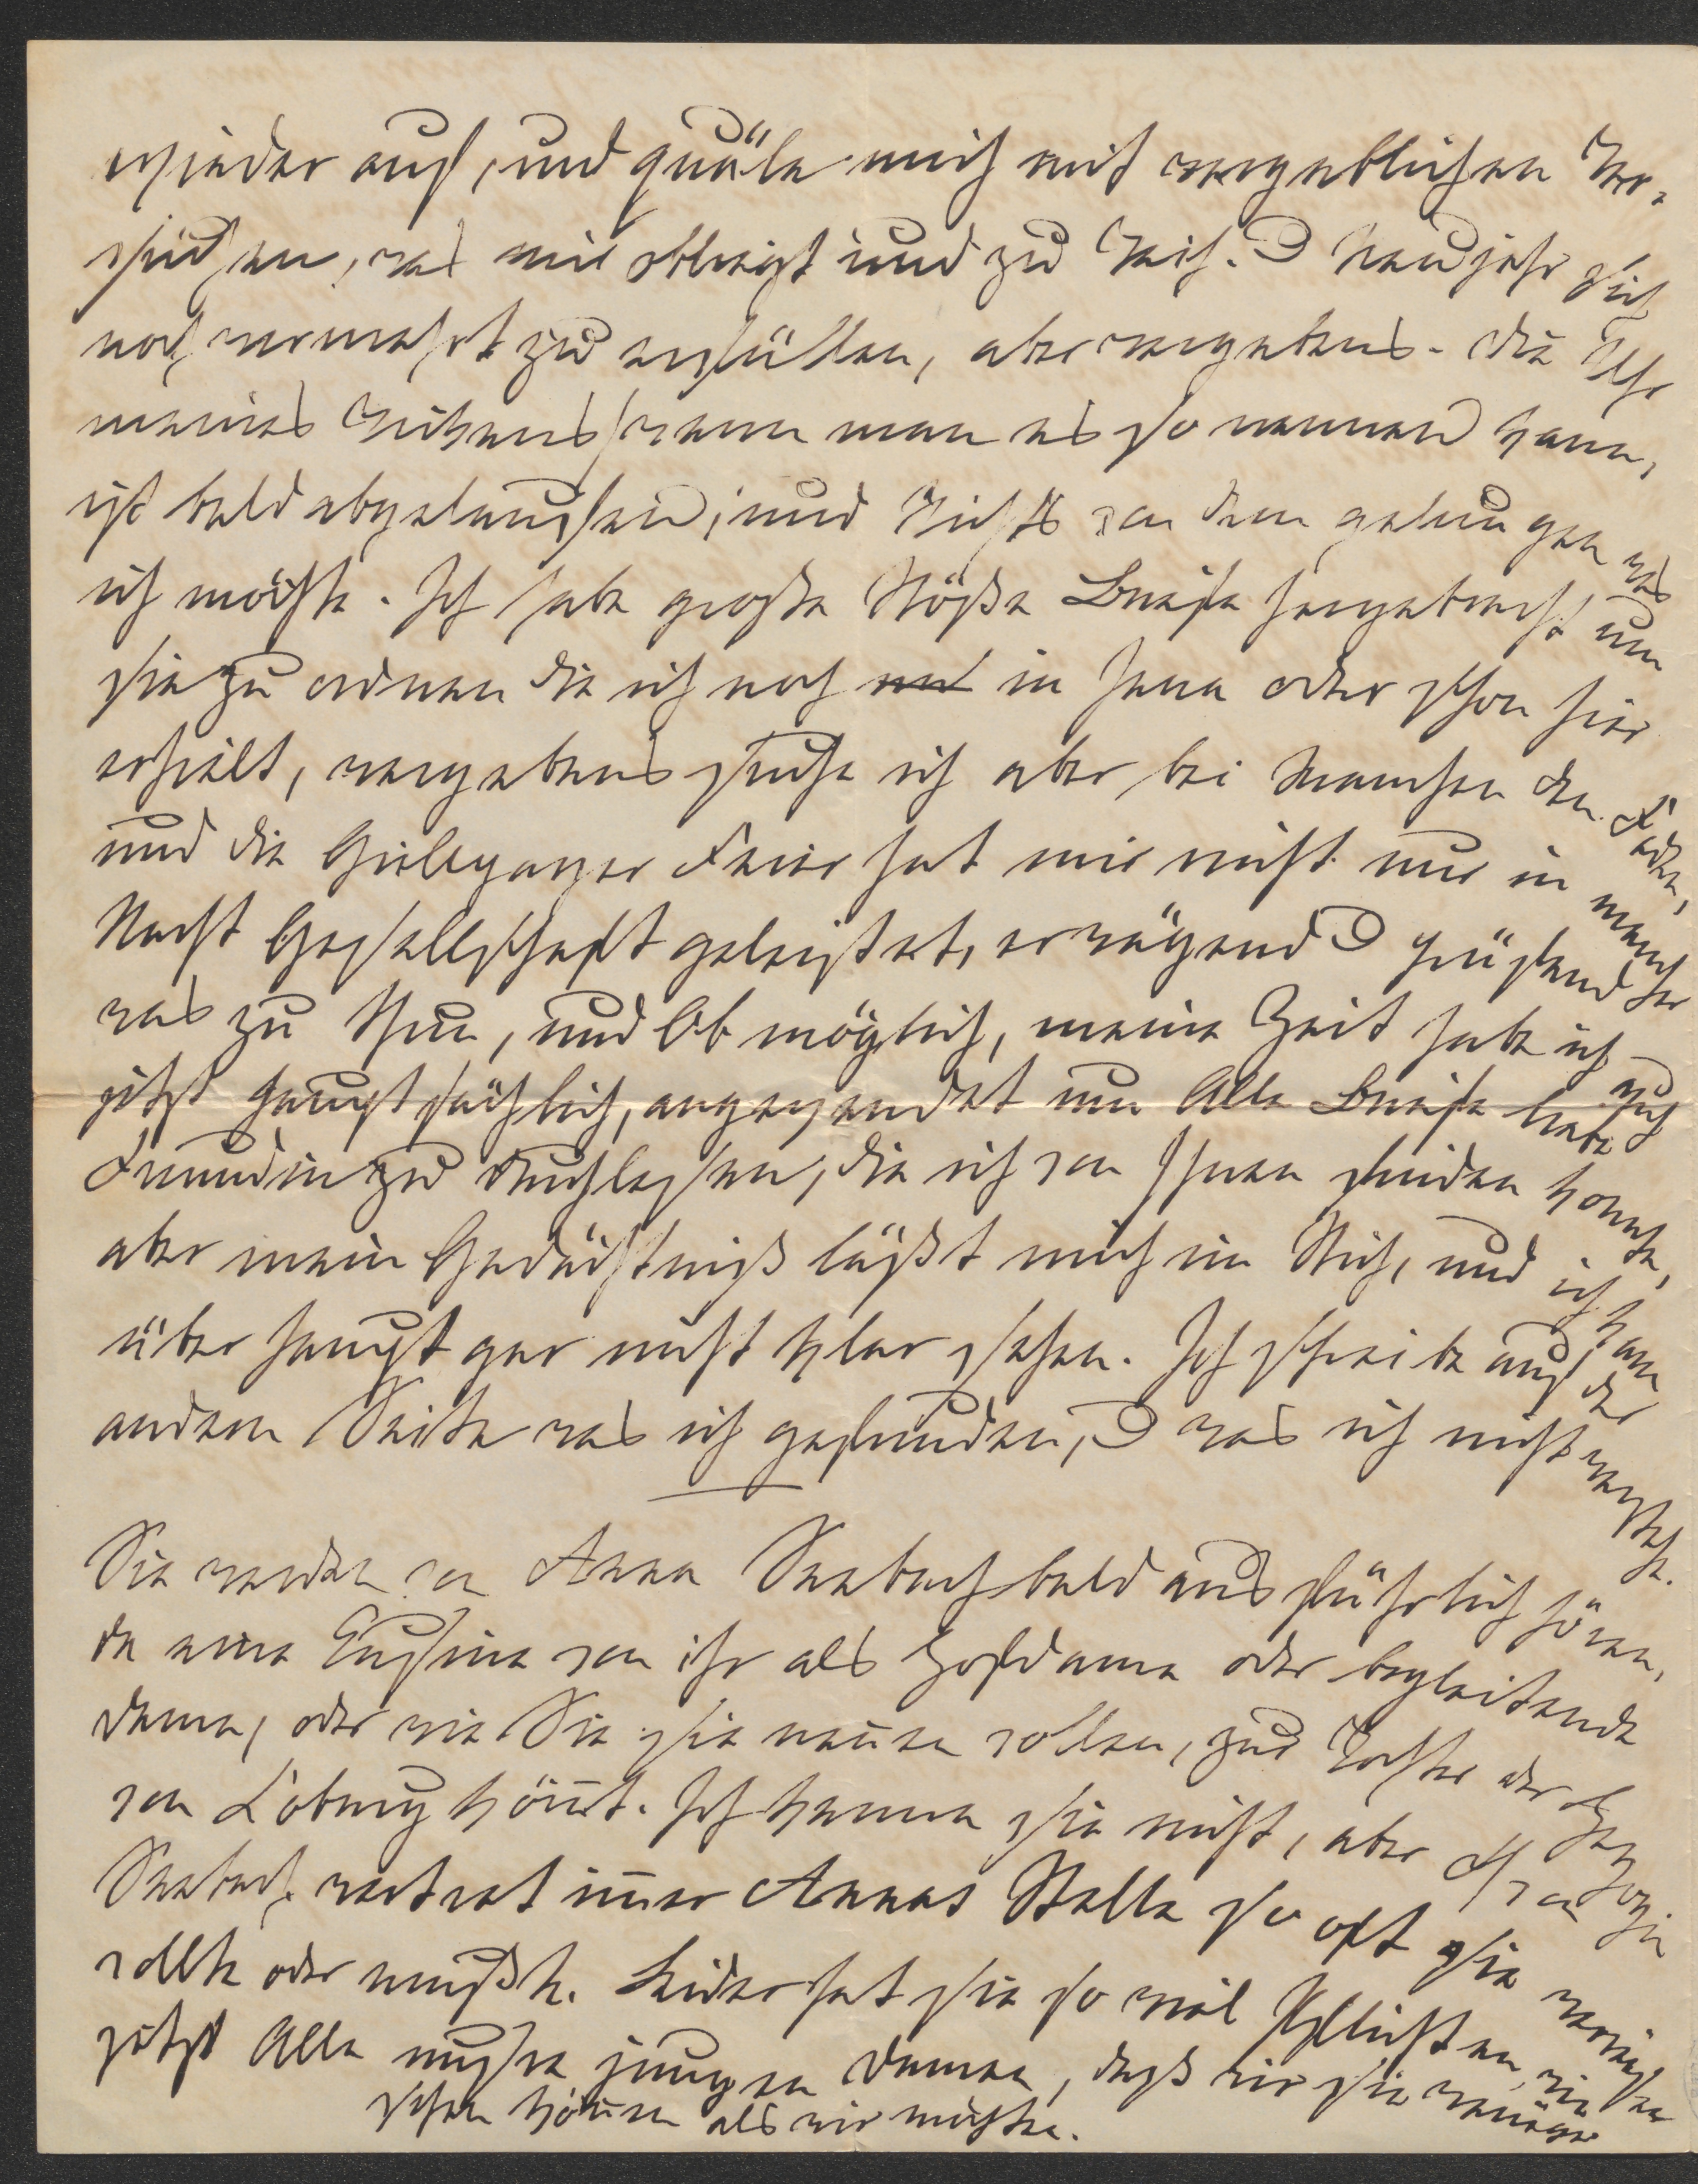 wieder auf, und quäle mich mit vergeblichen Ver-
suchen, was mir obliegt und zu Weih. u Neujahr sich
noch vermehrt zu erfüllen, aber vergebens. Die Uhr
meines Lebens, wenn man es so nennen kann,
ist bald abgelaufen, und Nichts von dem gelungen was
ich möchte. Ich habe große Stöße Briefe hergebracht, um
sie zu ordnen die ich noch in Jena oder schon hier
erhielt, vergebens suche ich aber bei Manchen den Faden,
und die Feier hat mir nicht nur in mancher
Nacht Gesellschaft geleistet, erwägend u prüfend
was zu thun, und Ob möglich, meine Zeit habe ich auch
jetzt hauptsächlich, angewendet um Alle Briefe liebe
Freundin zu durchlesen, die ich von Ihnen finden konnte,
aber mein Gedächtniß läßt mich im Stich, und ich kann
überhaupt gar nicht klar sehen. Ich schreibe auf der
andern Seite was ich gefunden, u was ich nicht verstehe.
Sie werden von Anna Seebach bald ausführlich hören,
da eine Cousine von ihr als Hofdame oder begleitende
Dame, oder wie Sie sie nennen wollen, zur Tochter der Herzogin
von Coburg kömt. Ich kenne sie nicht, aber von
Seebach vertrat imer Annas Stelle so oft sie verreisen
wollte oder mußte. Leider hat sie so viel Pflichten, wie
jetzt Alle unsre jungen Damen, daß wir sie weniger
sehen können als wir möchten.